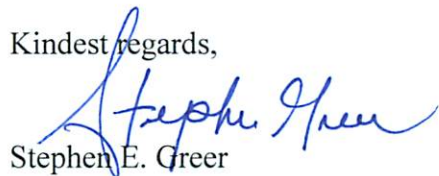 Kindest regards,
Stephen Greer
Stephen E. Greer